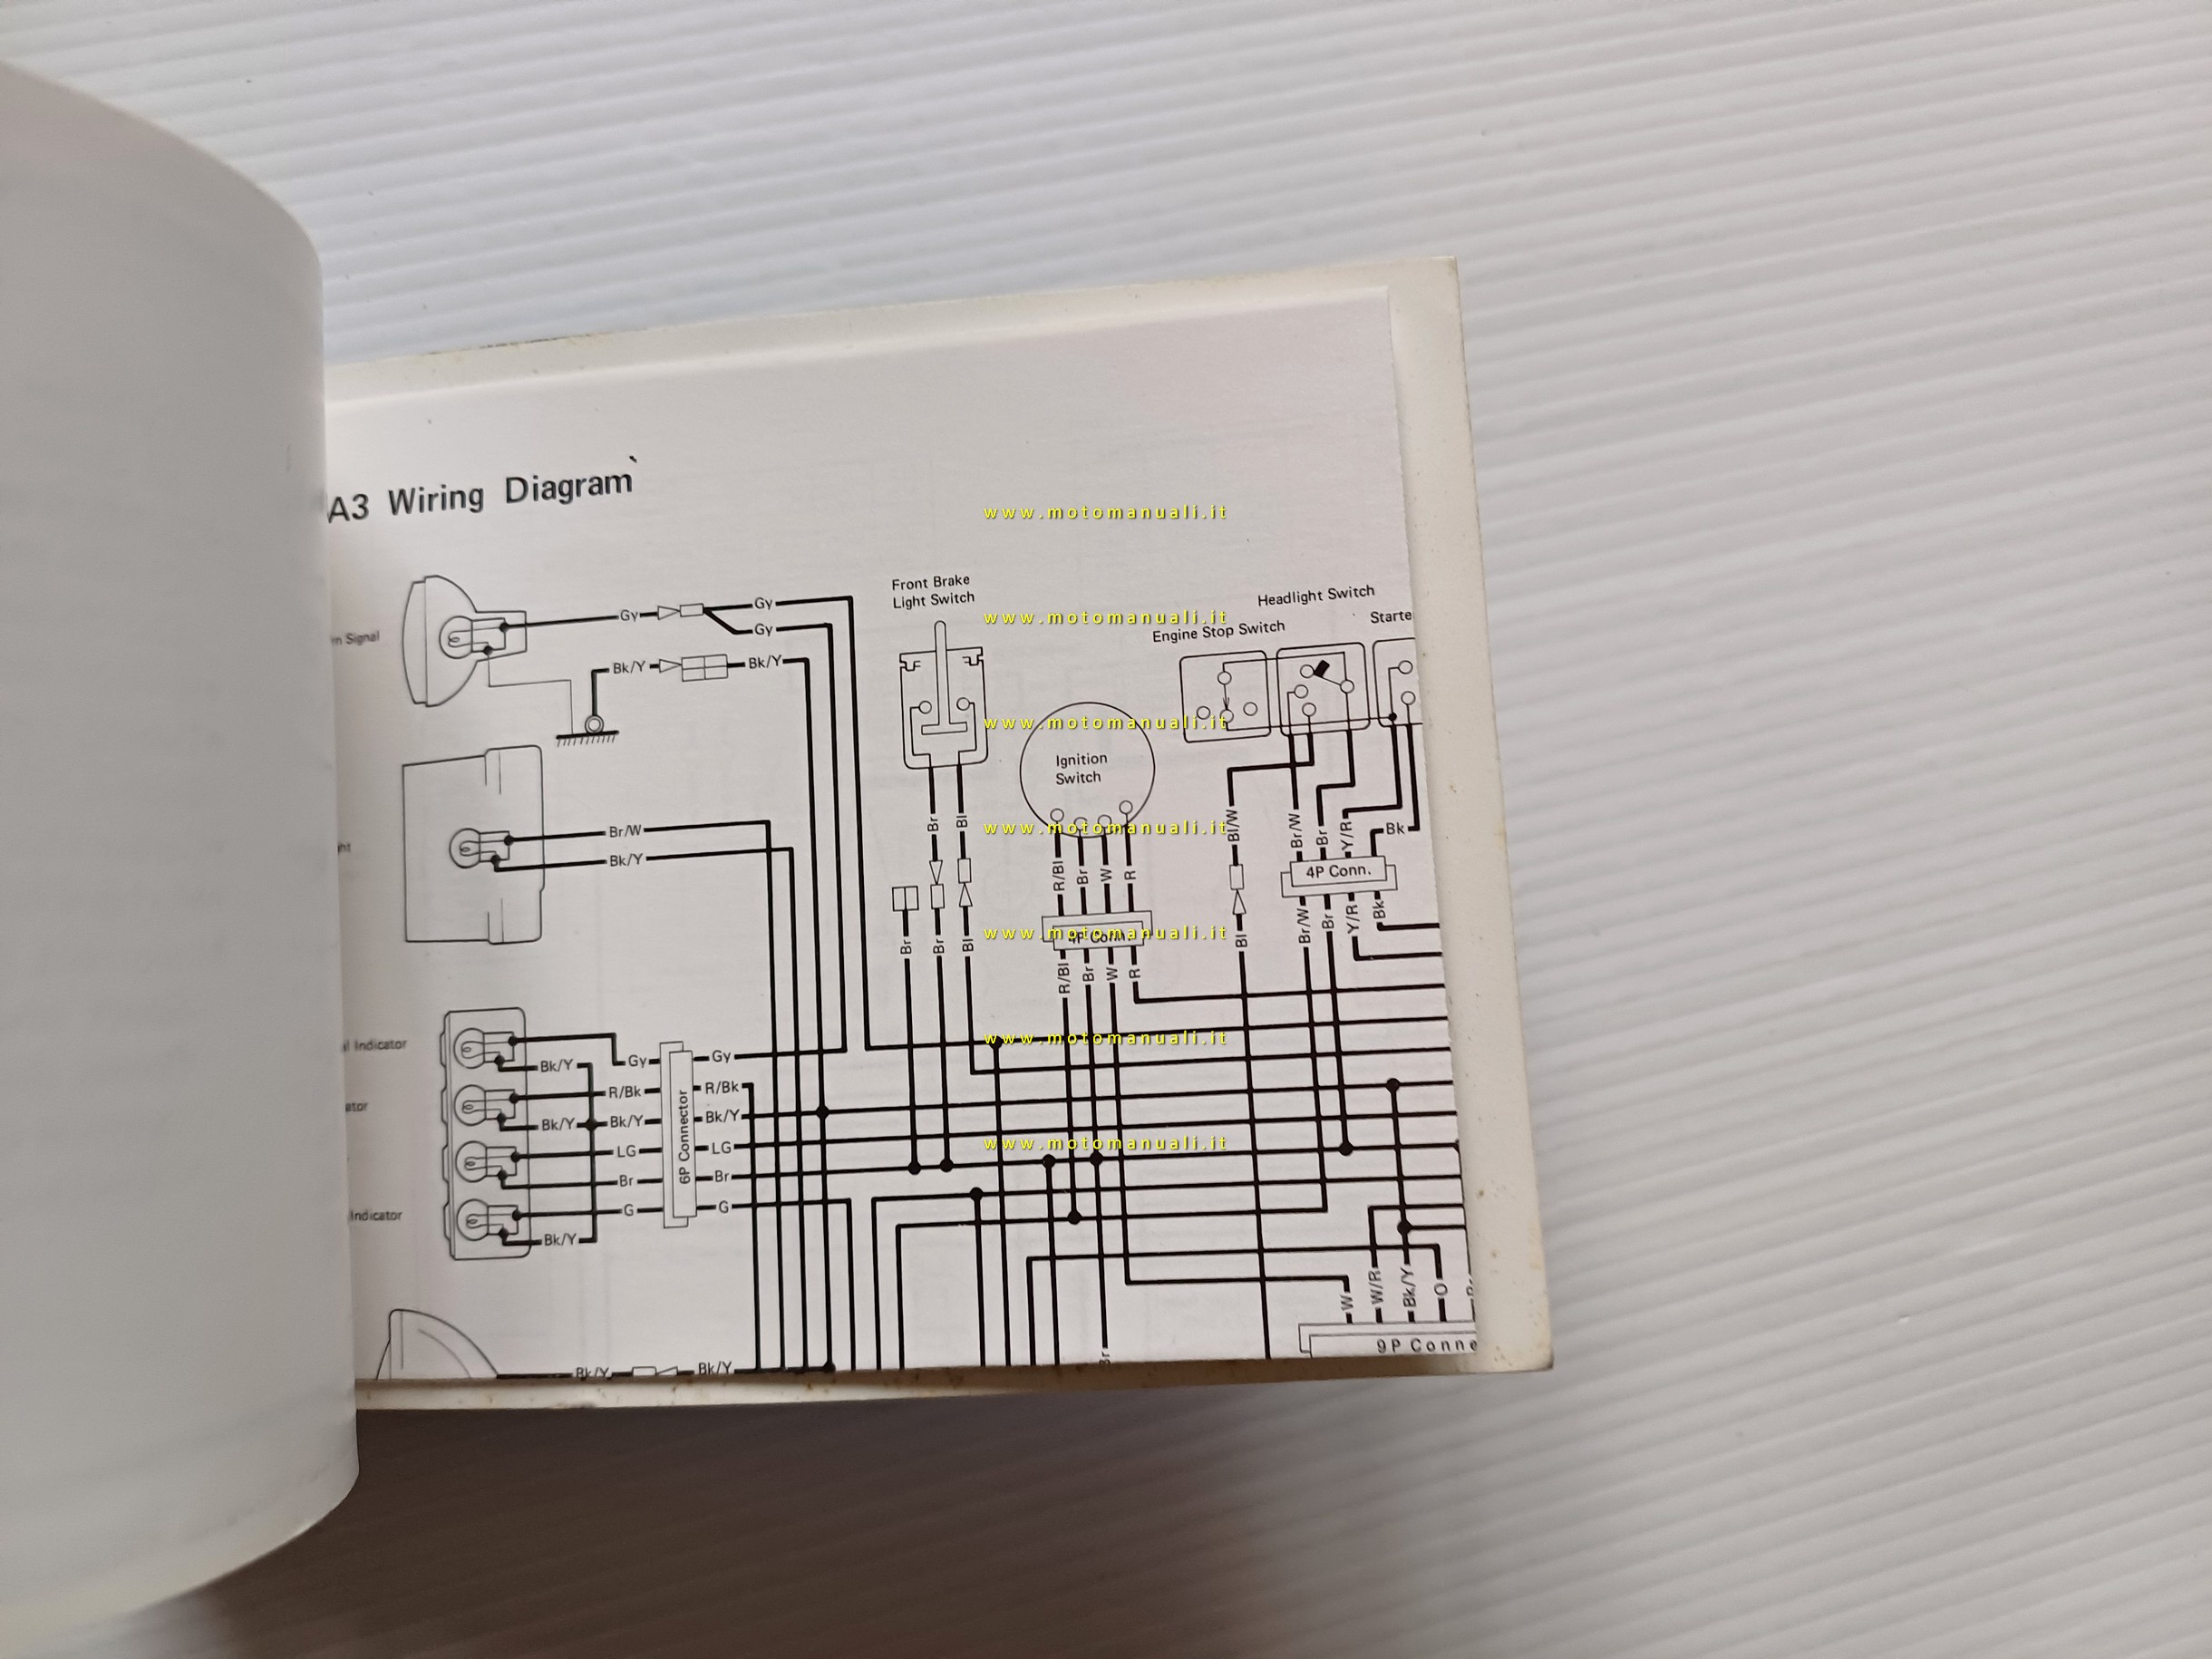 A3 Wiring Diagram
www.motomanuali.it
Front Brake
Light Switch
www.motomanuali.it
Headlight Switch
Engine Stop Switch
Starte
rn Signal
Gy
Gy
Gy
Bk/Y
Bk/Y
www.motomanuali.it
Ignition
Switch
www.motomanuali.it
Br/W
Bk/Y
ht
Br
Bl
R/Bl
Br
W
R
Bl/W
Br/W
Br
Y/R
Bk
4P Conn.
4P Conn.
www.motomanuali.it
Br
Br
Bl
R/Bl
Br
W
R
Bl
Br/W
Br
Y/R
Bk
www.motomanuali.it
al Indicator
Bk/Y
Gy
Gy
R/Bk
R/Bk
ator
Bk/Y
Bk/Y
Bk/Y
6P Connector
www.motomanuali.it
LG
LG
Br
Br
Indicator
G
G
Bk/Y
W
W/R
Bk/Y
O
9P Conne
Br
Bk/Y
Bk/Y